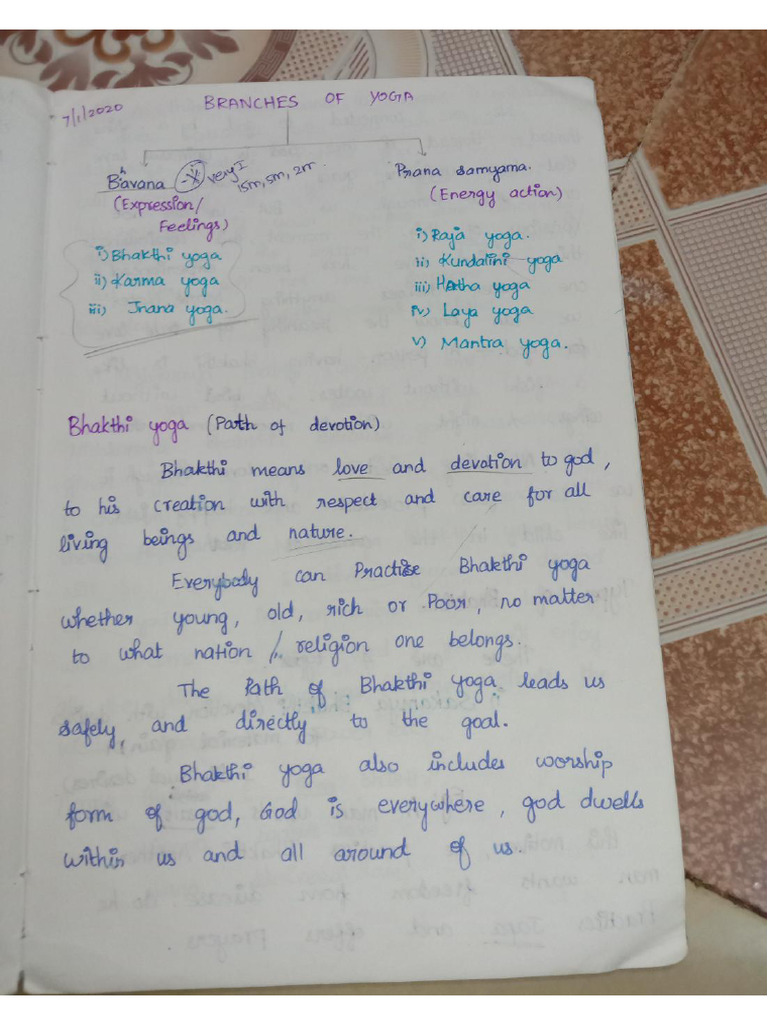 7/1/2020
BRANCHES OF YOGA
Bhavana very I 15m, 5m, 2m
(Expression/
Feelings)
i) Bhakthi yoga
ii) Karma yoga
iii) Jnana yoga.
Prana Samyama.
(Energy action)
i) Raja yoga.
ii) Kundalini yoga
iii) Hatha yoga
iv) Laya yoga
v) Mantra yoga.
Bhakthi yoga (Path of devotion)
Bhakthi means love and devotion to god,
to his creation with respect and care for all
living beings and nature.
Everybody can Practise Bhakthi yoga
whether young, old, rich or Poor, no matter
to what nation / religion one belongs.
The Path of Bhakthi yoga leads us
safely, and directly to the goal.
Bhakthi yoga also includes worship
form of god, God is everywhere, god dwells
within us and all around of us.